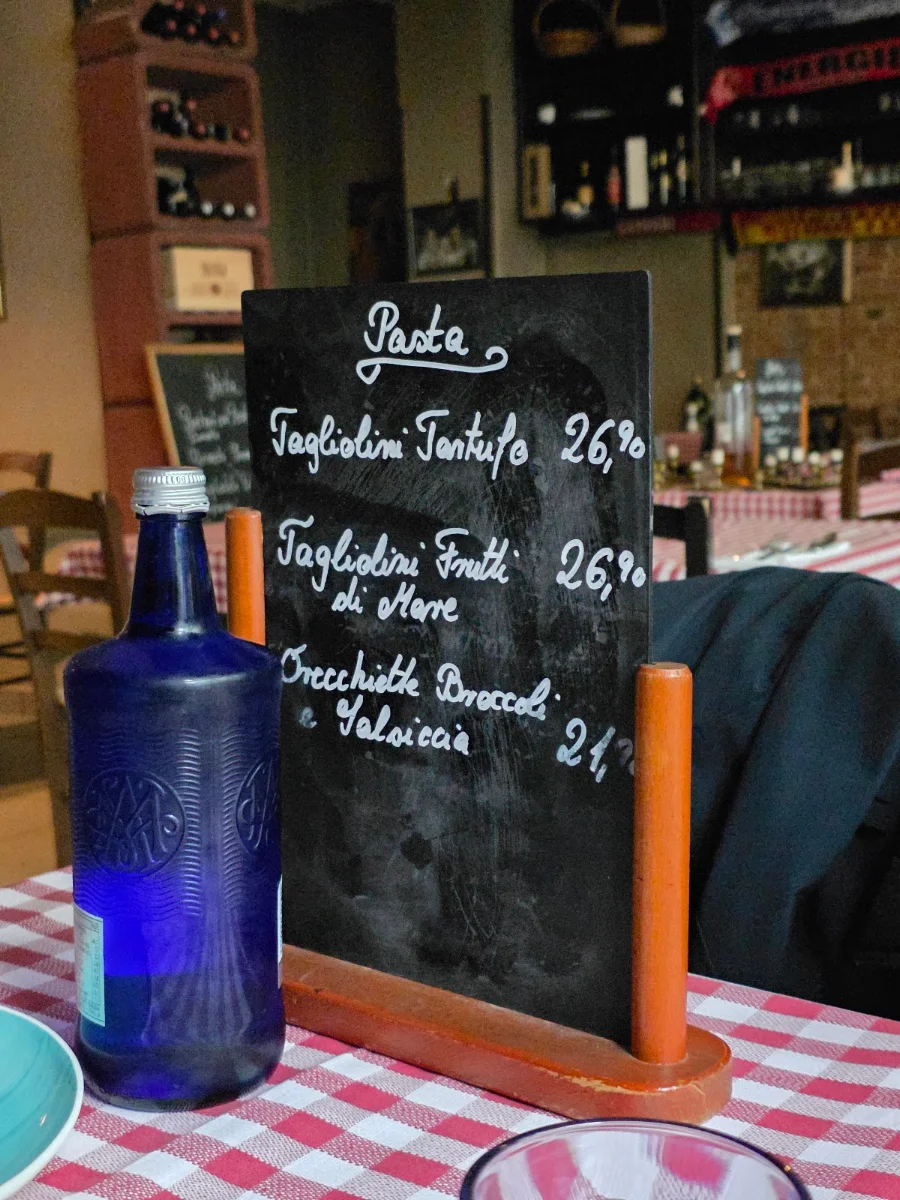 ENERGIE
Pasta
Tagliolini Tartufo 26,90
Tagliolini Frutti 26,90
di Mare
Orecchiette Broccoli
e Salsiccia 21,9